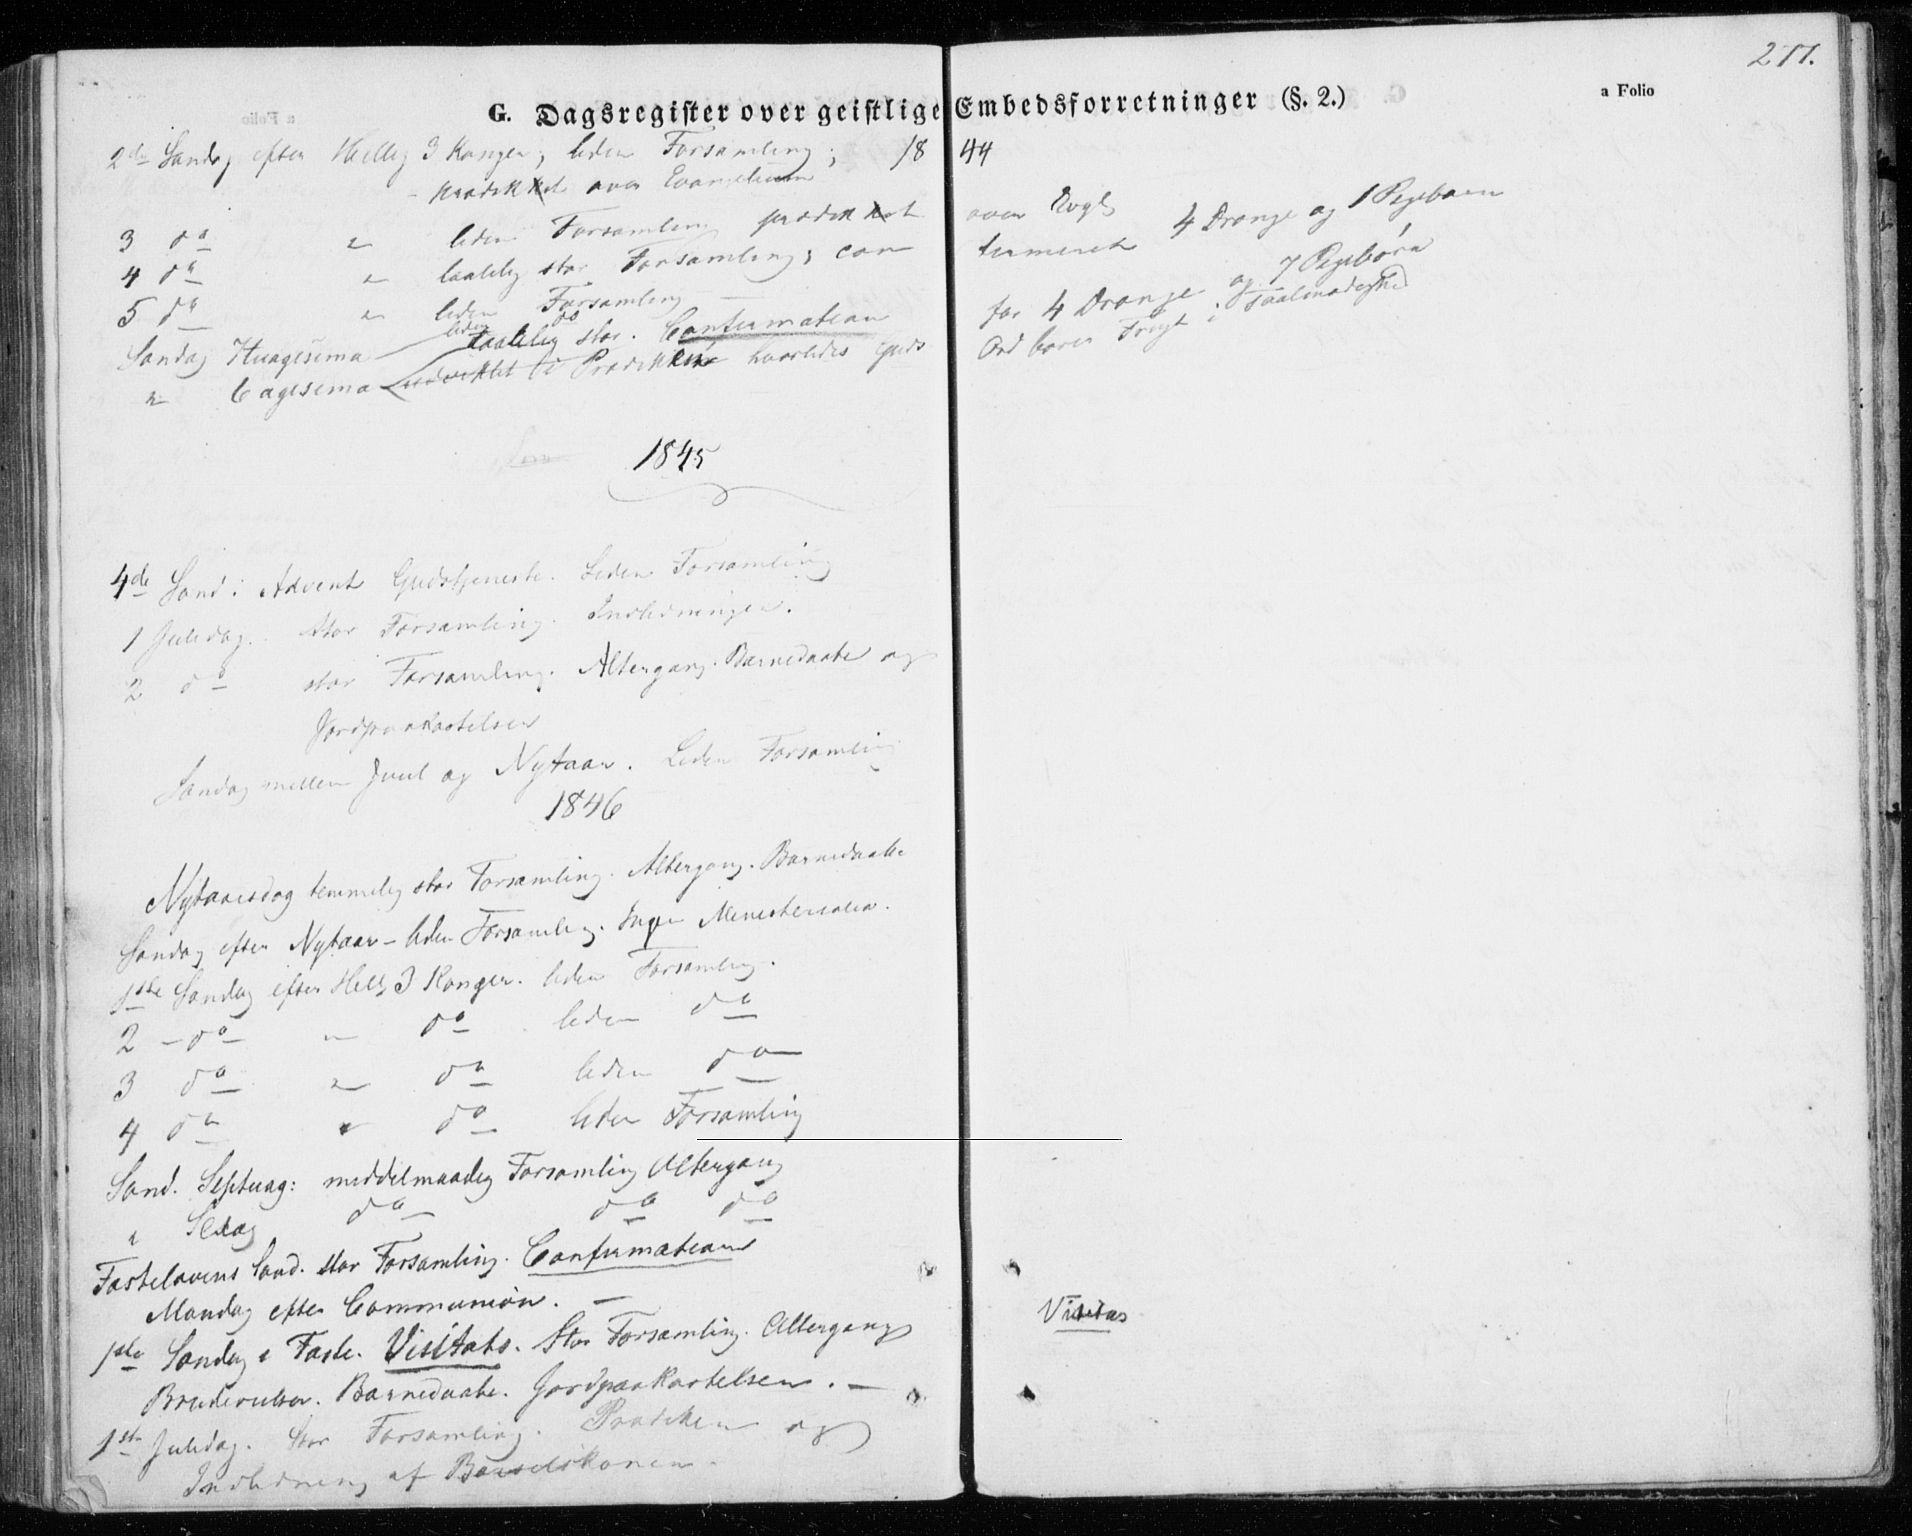 277.
G. Dagsregister over geistlige Embedsforretninger (§. 2.) a Folio
2de Søndag efter Hellig 3 Konger, liden Forsamling; 1844
- prædikket over Evangelium
3 do " liden Forsamling prædikket over Evgl
4 do " taalelig stor Forsamling; confirmeret 4 Drenge og 1 Pigebarn
5 do " liden Forsamling
Søndag liden do for 4 Drenge og 7 Pigebørn
taalelig stor. Confirmation
" udviklet i Prædikken hvorledes Guds Ord bærer Frugt i Taalmodighed
1845
4de Sønd: Advent Gudstjeneste. Liden Forsamling
1 Juledag. stor Forsamling. Indledninger.
2 do stor Forsamling. Altergang. Barnedaabe og
Jordpaakastelser
Søndag mellem Juul og Nytaar. Liden Forsamling
1846
Nytaarsdag temmelig stor Forsamling. Altergang. Barnedaabe
Søndag efter Nytaar - liden Forsamling. Ingen Ministerialia.
1ste Søndag efter Hellg 3 Konger. liden Forsamling.
2 - do " do liden do
3 do " do liden do
4 do " do liden Forsamling
Sønd. Septuag: middelmaadig Forsamling Altergang
" Sexag do do do
Fastelavens Sønd. stor Forsamling. Confirmation
Mandag efter Communion. -
1ste Søndag i Faste. Visitats. Stor Forsamling. Altergang
Visitas
Brudevielser. Barnedaabe. Jordpaakastelser. -
1ste Juledag. Stor Forsamling. Prædiken og
Indledning af Barselskoner.